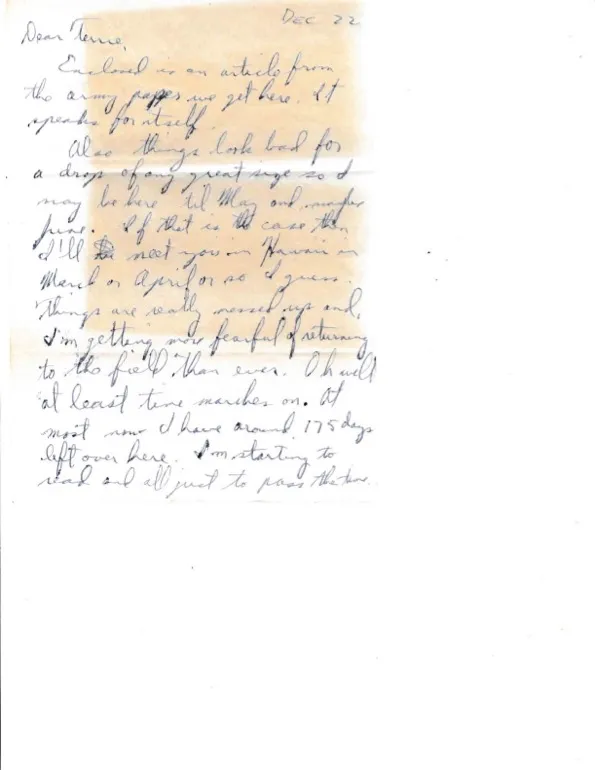 DEC 22
Dear Terrie,
Enclosed is an article from
the army paper we get here. It
speaks for itself.
Also things look bad for
a drop of any great size so I
may be here 'til May and maybe
June. If that is the case then
I'll meet you in Hawaii in
March or April or so I guess.
Things are really messed up and
I'm getting more fearful of returning
to the field than ever. Oh well
at least time marches on. At
most now I have around 175 days
left over here. I'm starting to
read and all just to pass the time.